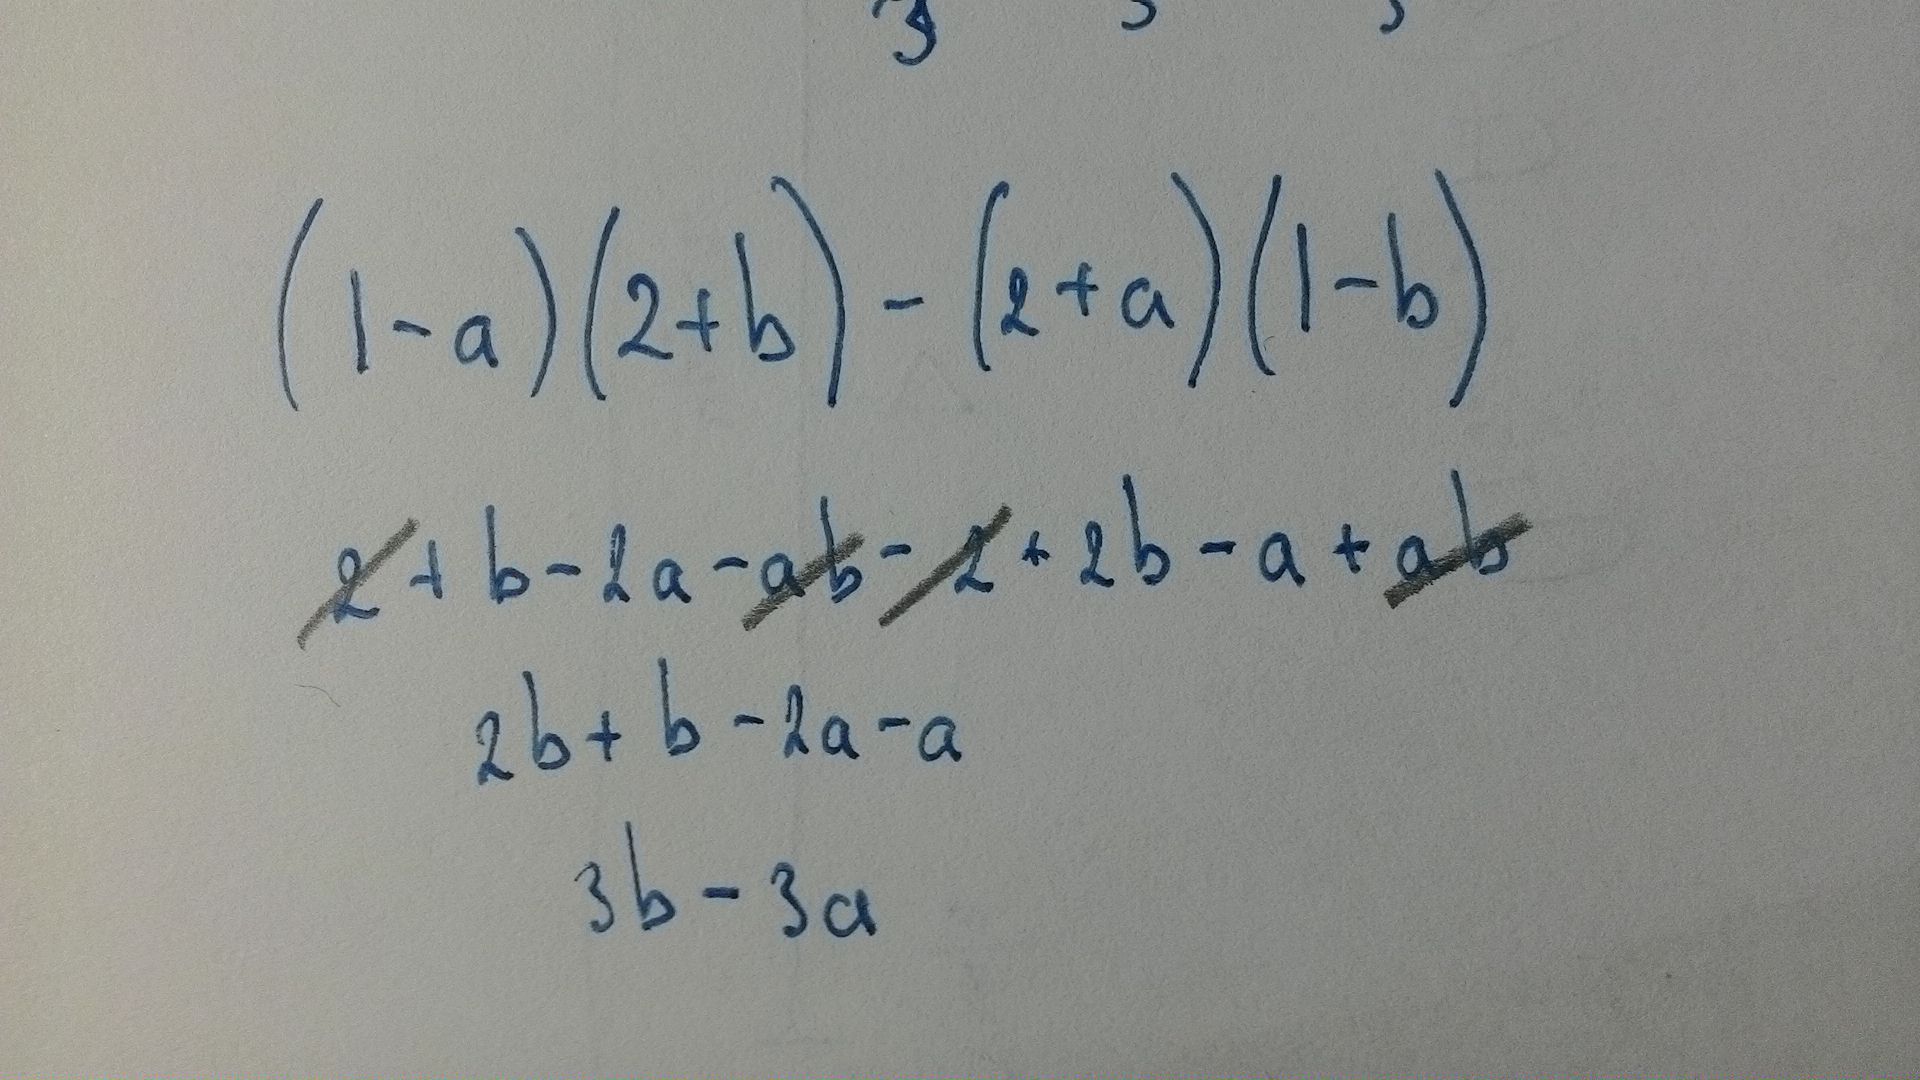 (1-a)(2+b) - (2+a)(1-b)
2 + b - 2a - ab - 2 + 2b - a + ab
2b + b - 2a - a
3b - 3a